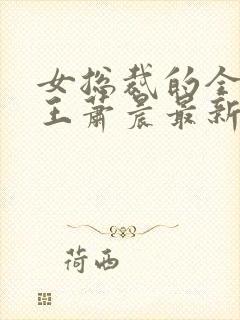 女总裁的全
王萧晨最新
荷西